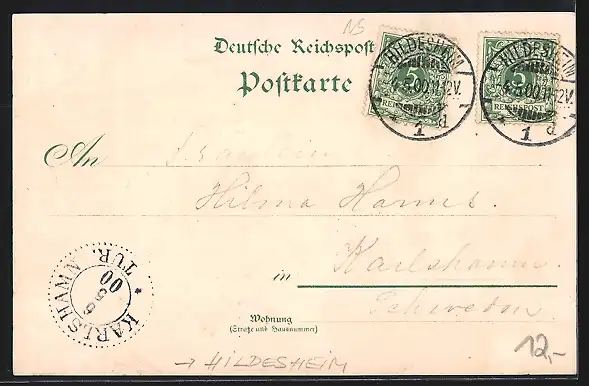 NS
Deutsche Reichspost
Postkarte
5
REICHSPOST
HILDESHEIM
4.5.00.11-12V.
1 d
5
REICHSPOST
HILDESHEIM
4.5.00.11-12V.
1 d
An Fräulein
Hilma Hanns.
Karlshamn.
in
Schweden
KARLSHAMN
TUR.
00
Wohnung
(Straße und Hausnummer)
→ HILDESHEIM
12,-